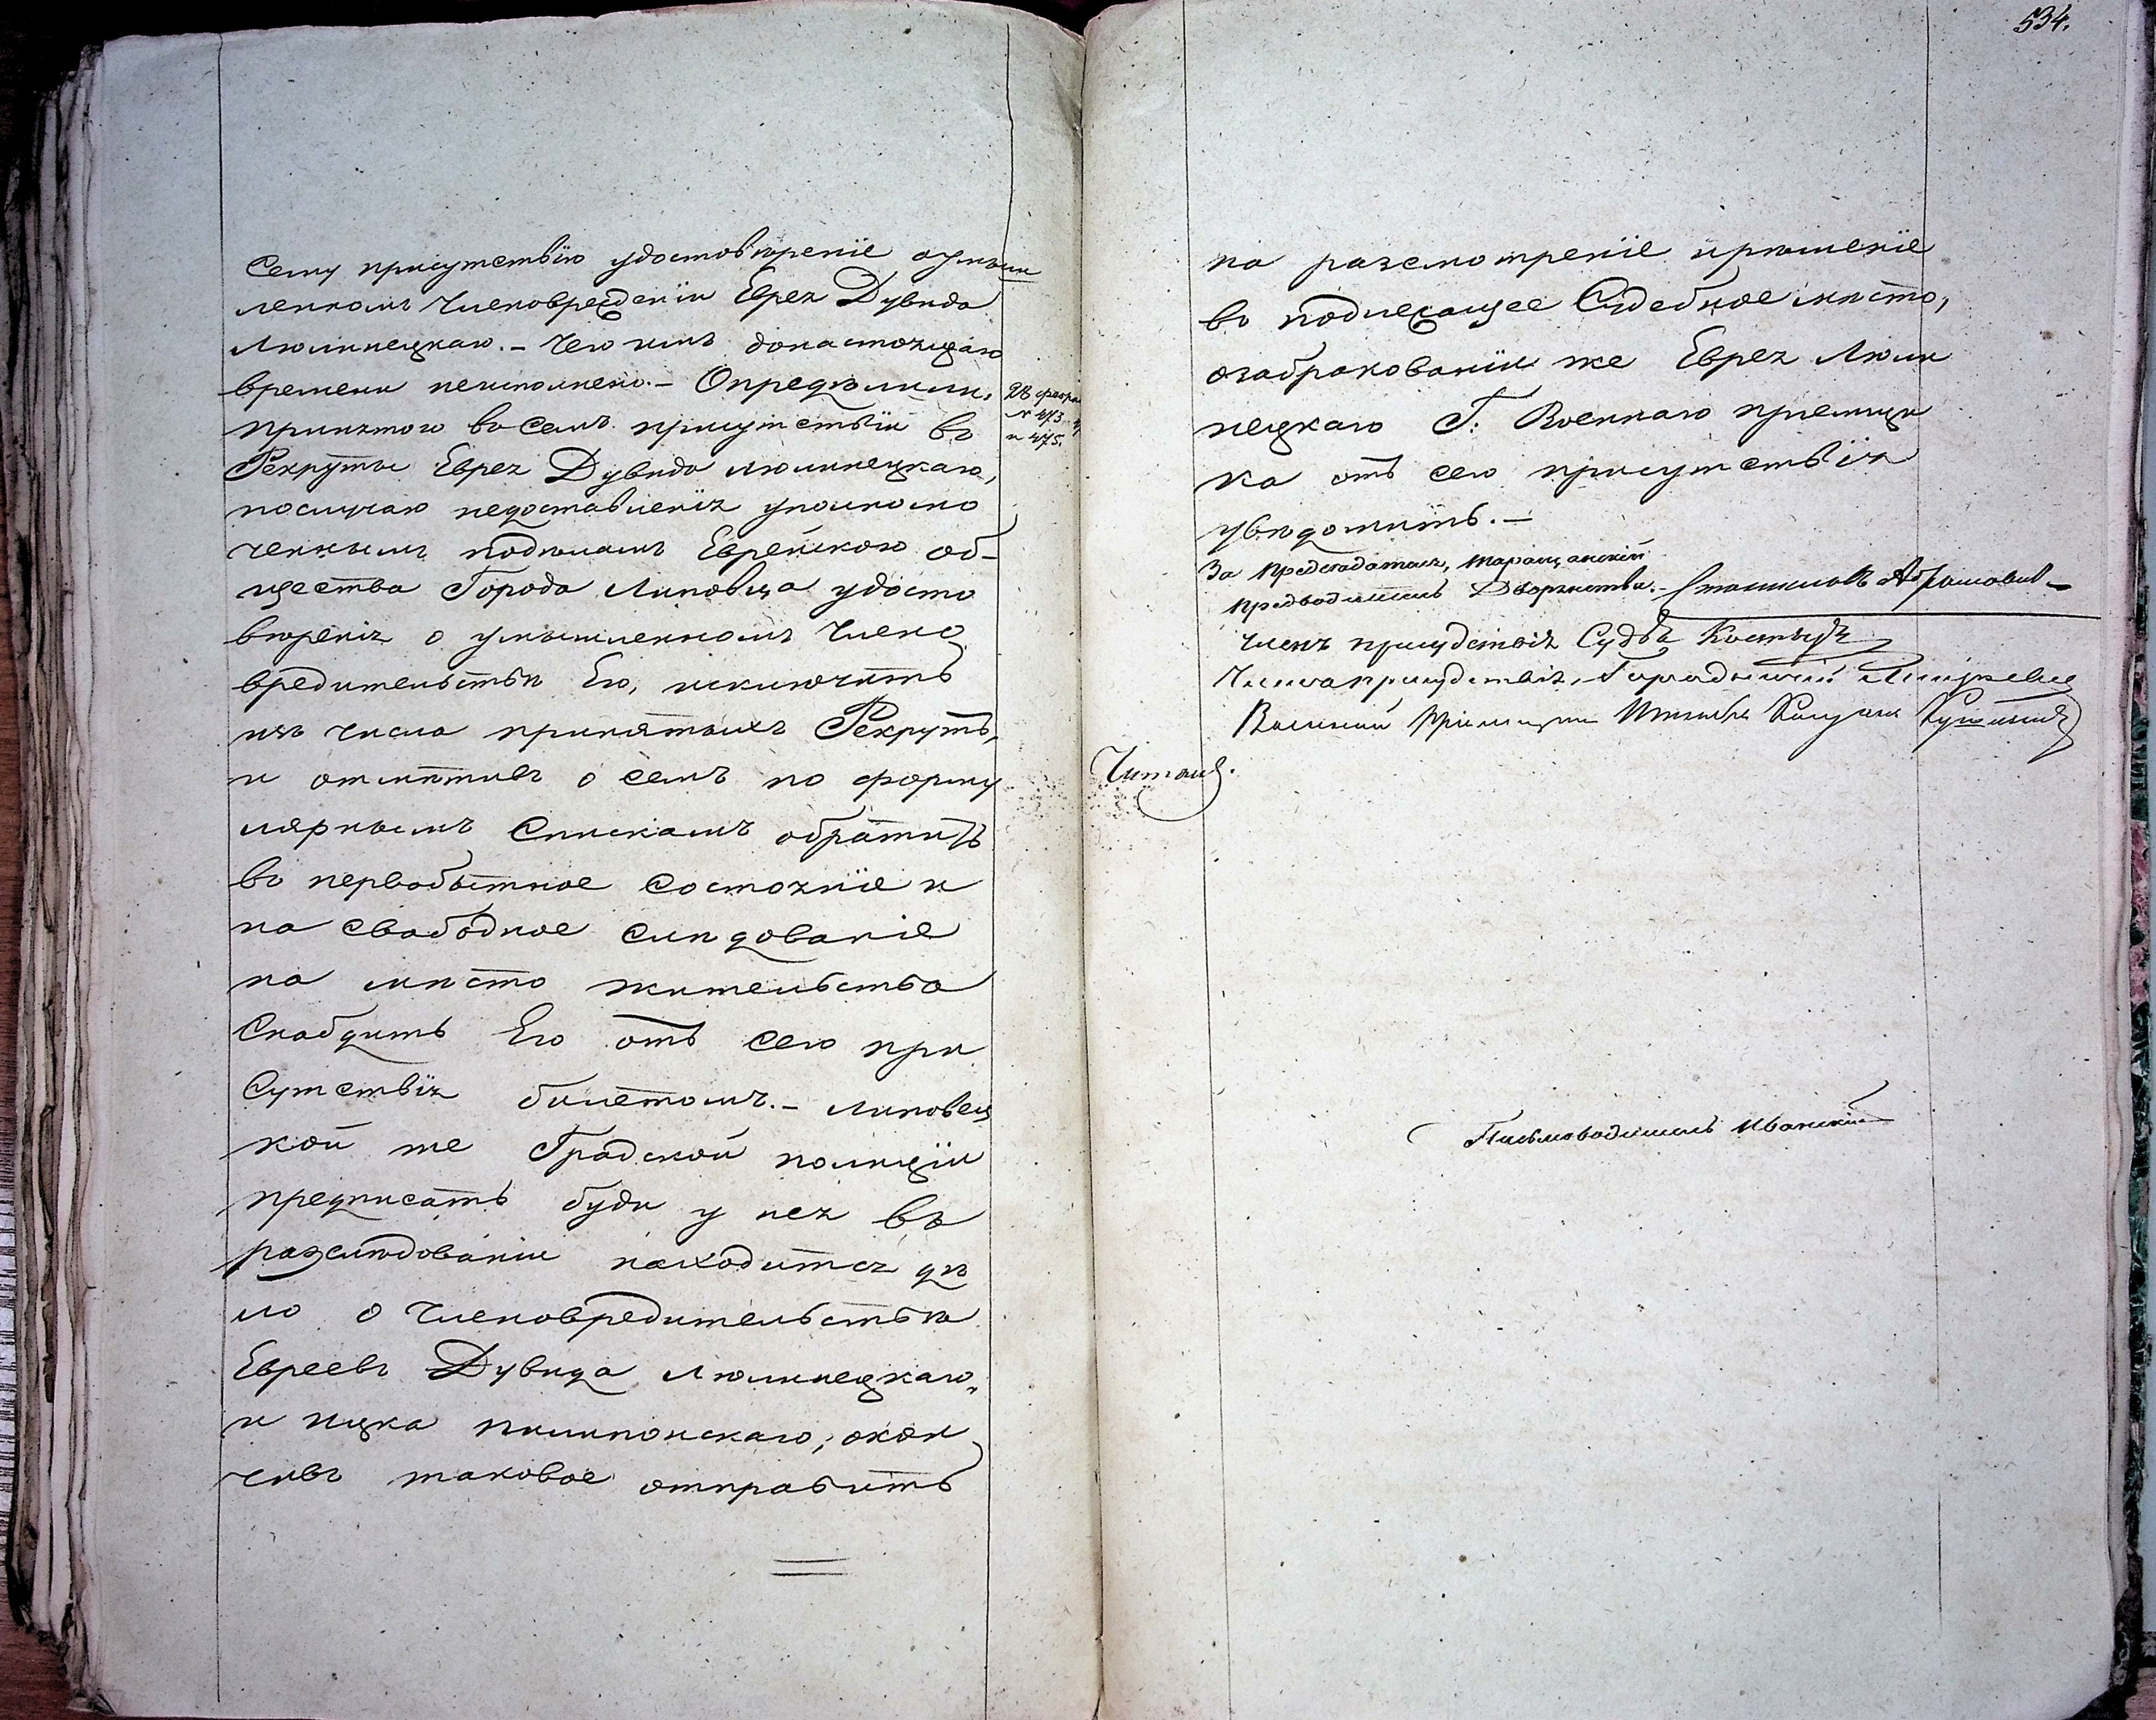 Сему присутствію удостовѣреніе оумыш
ленномъ Членоврежденіи Еврея Дувида
Люлинецкаго. - Чего имъ донастоящаго
времени неисполнено. - Опредѣлили:
Принятого въ семъ присутствіи въ
Рекруты Еврея Дувида Люлинецкаго,
послучаю недоставленія уполномо
ченнымъ подѣламъ Еврейского об-
щества Города Липовца удосто
вѣренія о умышленномъ Члено
вредительствѣ Его, исключить
изъ числа принятыхъ Рекрутъ,
и отмѣтивъ о семъ по форму
лярнымъ Спискамъ обратить
въ первобытное состояніе и
на свободное слѣдованіе
на мѣсто жительства
Снабдить Его отъ сего при
Сутствія билетомъ. - Липовец
кой же Градской полиціи
предписать буди у нея въ
разслѣдованіи находится дѣ
ло о Членовредительствѣ
Евреевъ Дувида Люлинецкаго,
и Ицка окон
чивъ таковое отправить
28
№ 473
и 475.
534.
на разсмотреніе ирѣшеніе
въ подлежащее Судебное мѣсто,
озабракованіи же Еврея Люли
нецкаго Г: Военнаго пріемщи
ка отъ сего присутствія
увѣдомить. -
За Председателя, Таращанскій
предводитель Дворянства. -
Членъ присудствія Судья
Члена присудствія,
Военный Пріемщикъ
Читалъ.
Письмоводитель Иванскій